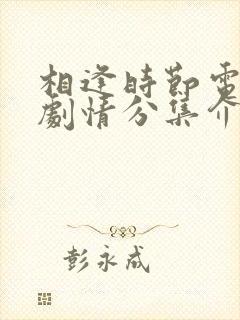 相逢時節電
劇情分集介
彭永成